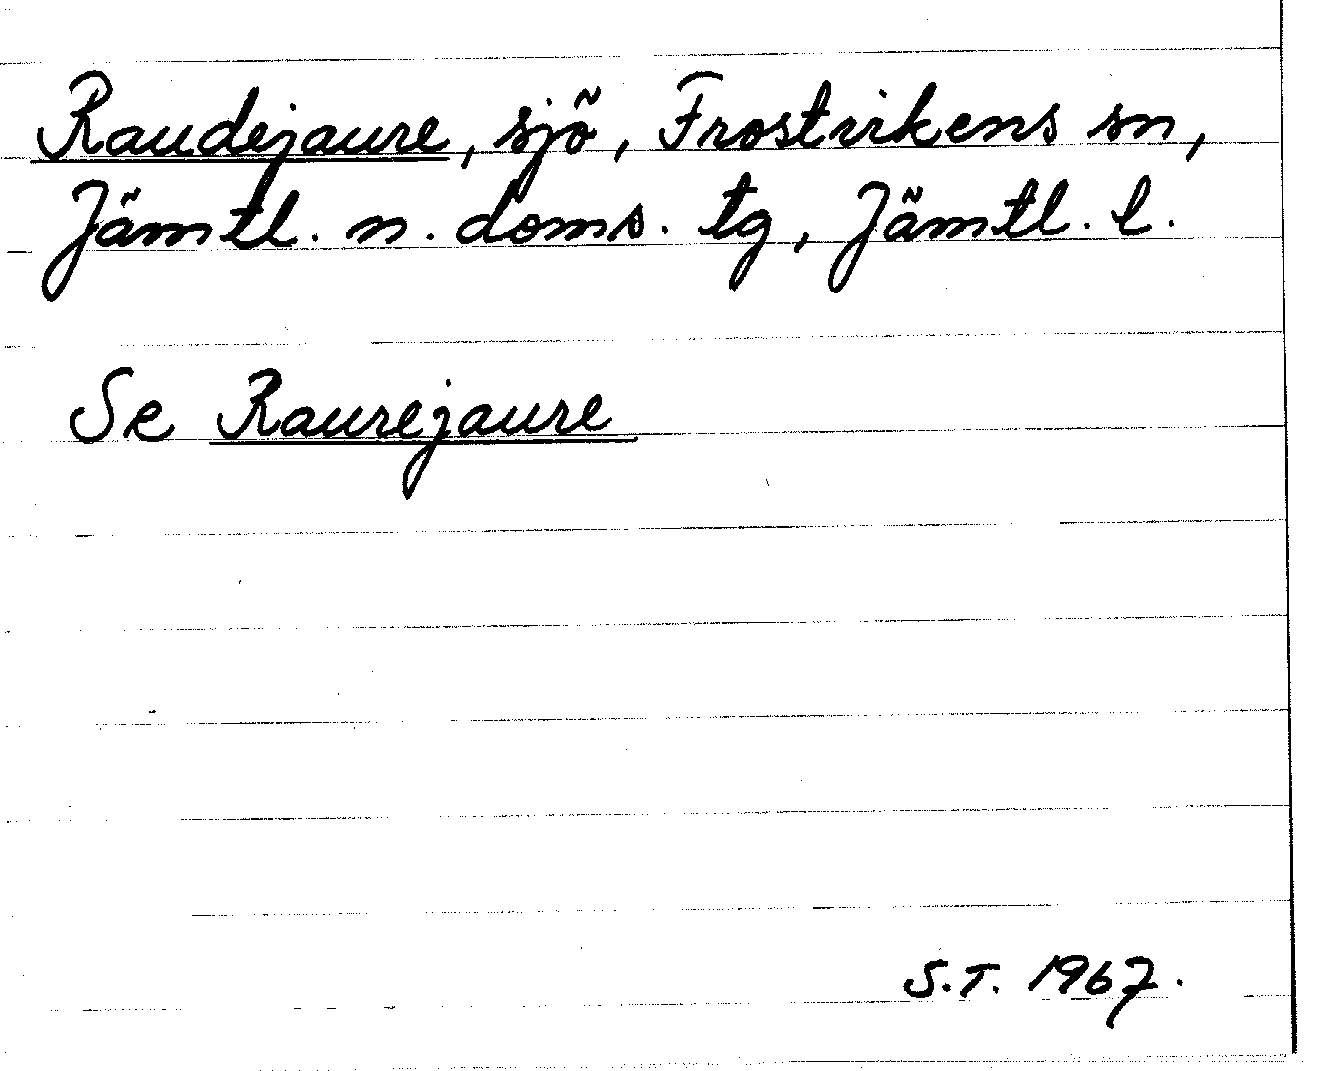 Raudejaure, sjö, Frostvikens sn,
Jämtl. n. doms. tg, Jämtl. l.
Se Raurejaure
S.T. 1967.